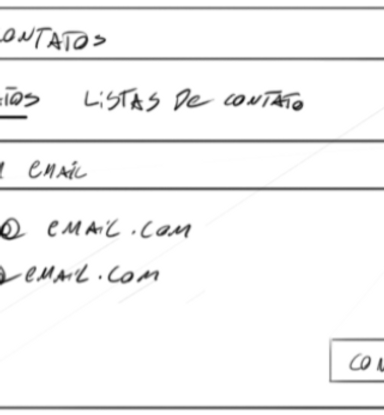 CONTATOS
LISTAS DE CONTATO
EMAIL
@ EMAIL.COM
@EMAIL.COM